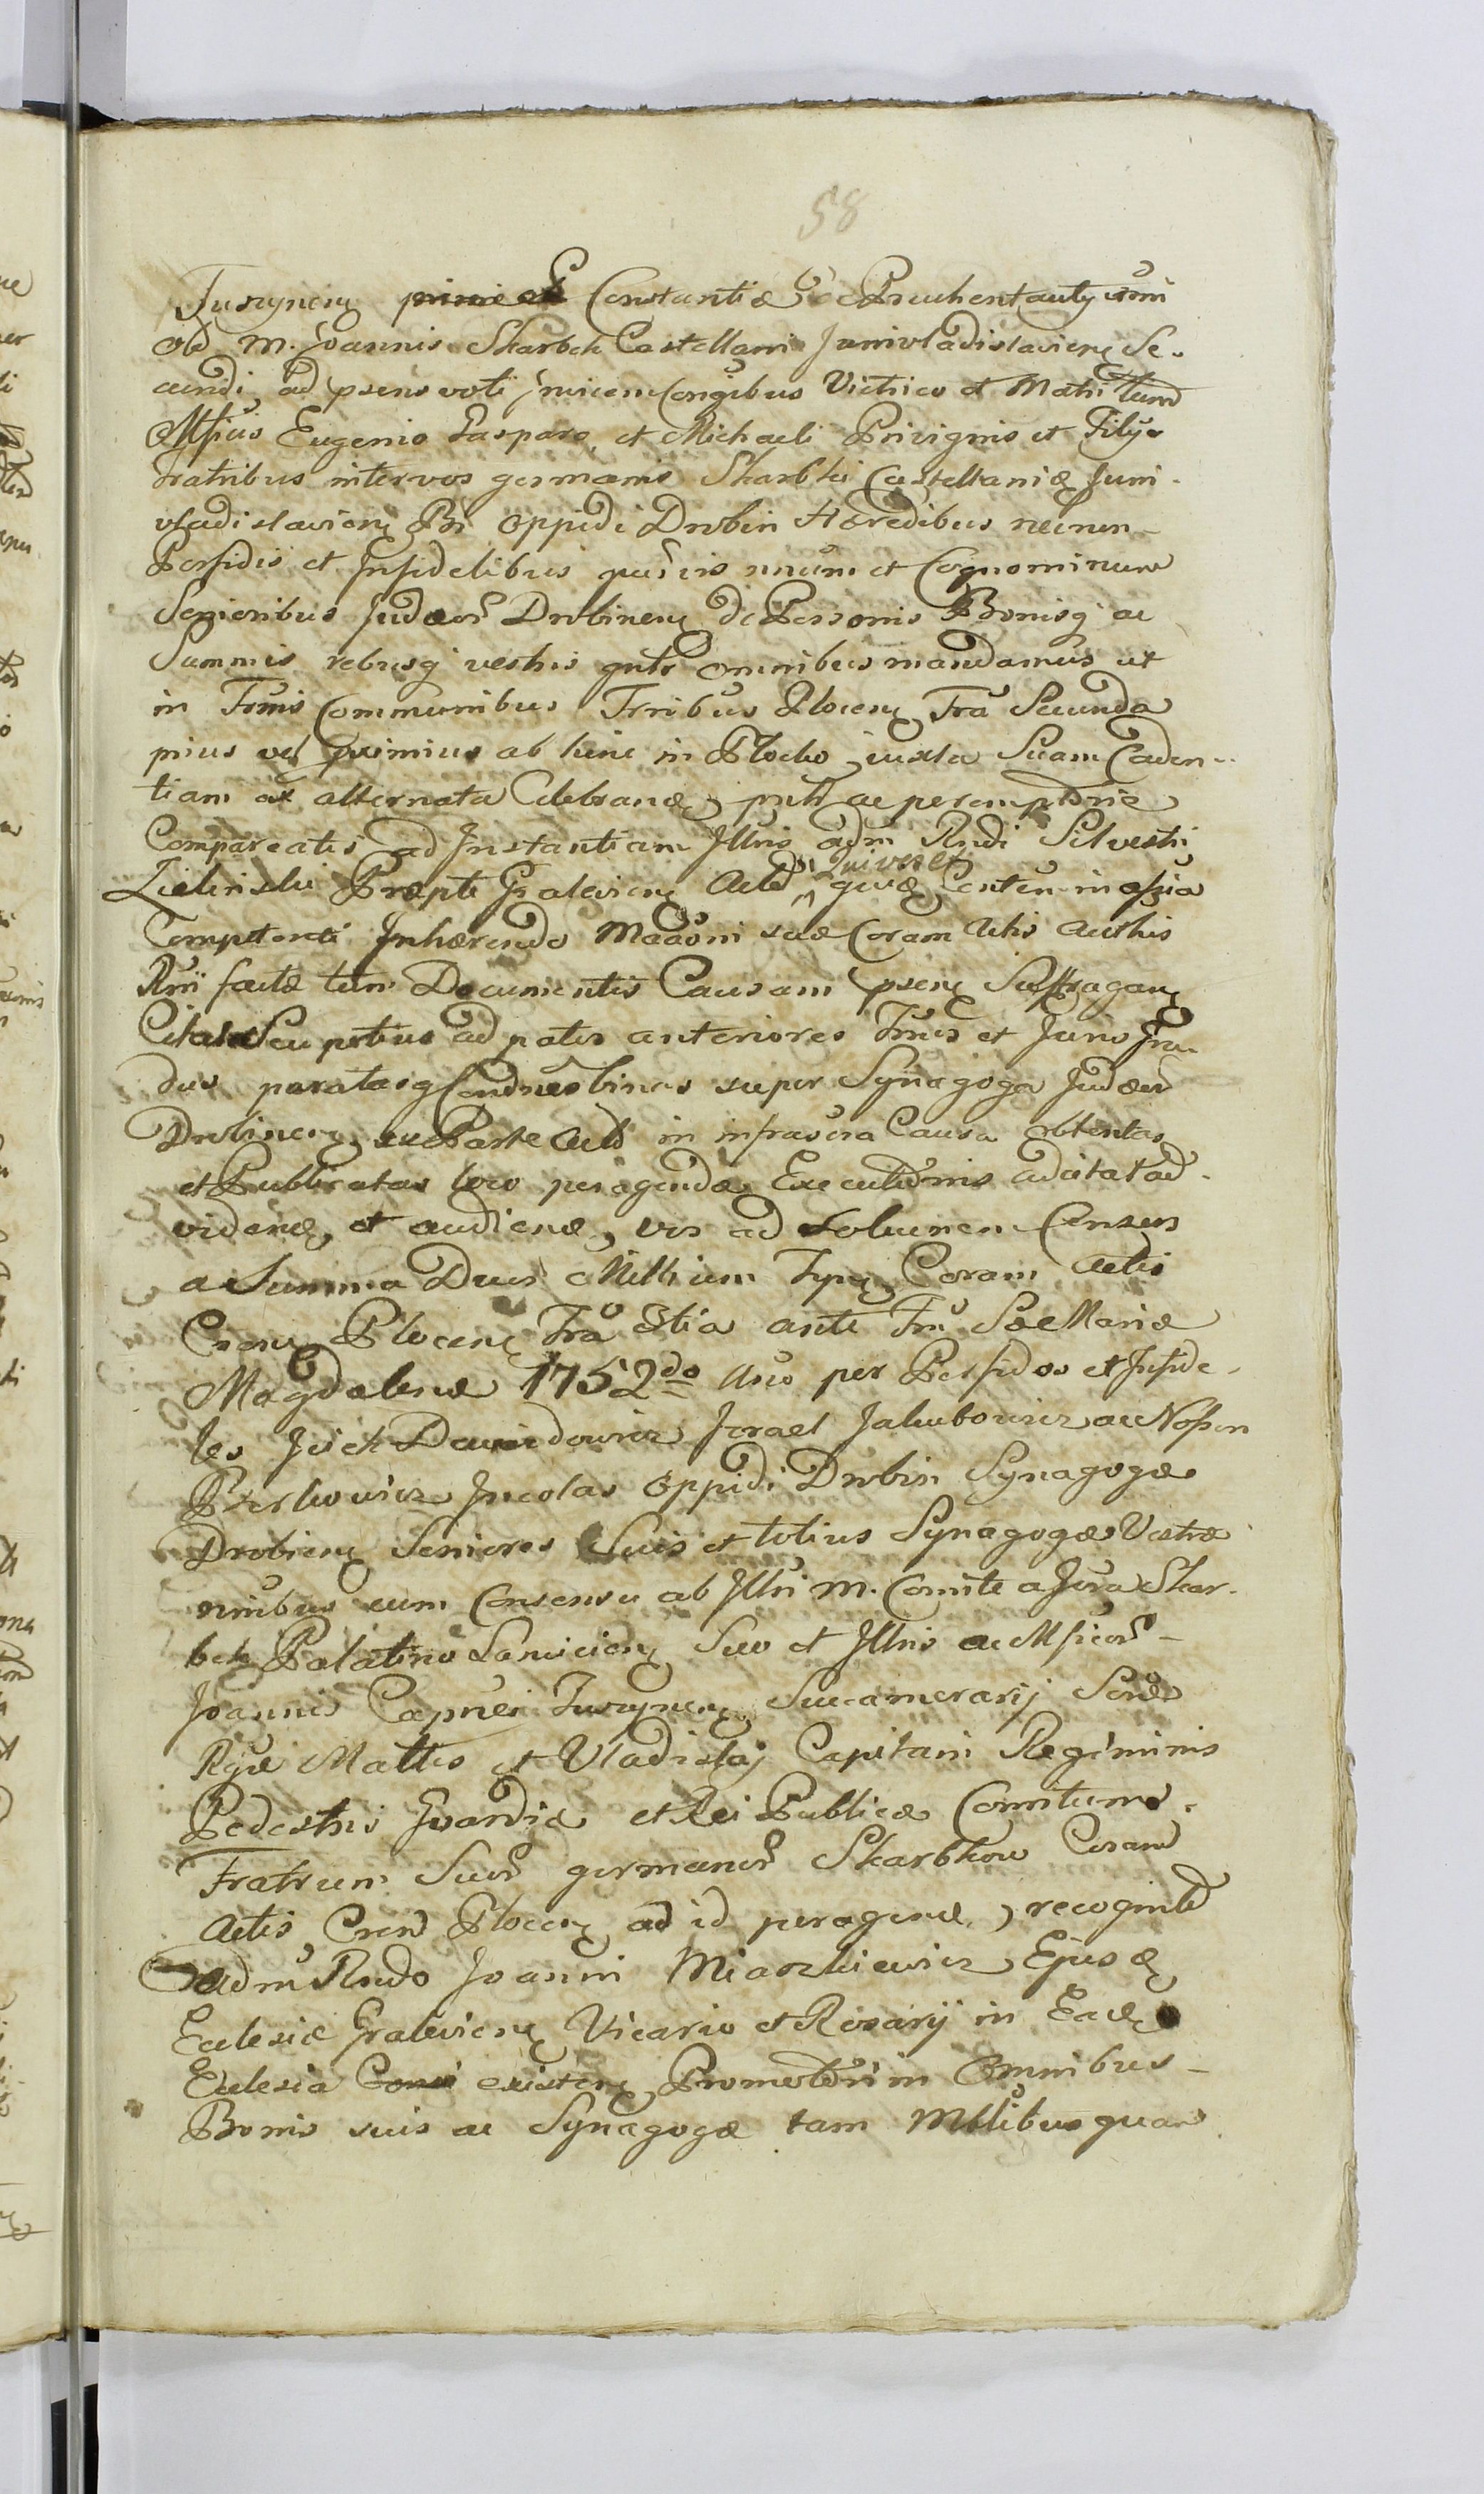 58
Juszynen primi et Constantiæ de Bruchentauty
olb M. Joannis Skarbek Castellani Junivladislavien Se-
cundi ad psens voti invicem Congibus Vitrico et Matri tum
Mficis Eugenio Gasparo et Michaeli Privignis et Filys
Fratribus intervos germanis Skarbki Castellaniæ Juni-
vladislavien Bi Oppidi Drobin Hæredibus necnon
Perfidis et Infidelibus nnum et Cognominum
Senioribus Judæor Drobinen de Personis Bonisq ac
Summis rebusq vestris gntr omnibus mandamus ut
in Trmis Communibus Trribus Plocen Fra Secunda
pius vel primius ab hinc in Plocko juxta Suam Caden-
tiam ex alternata Celebrand, pntr ac peremptorie
Compareatis ad Instantiam Illris adm Rndi Silvestri
Zielinski Præpti Gralevien Actd
quæ Conten in assia
Competenti Inhærendo Maaoni suæ Coram Actis Authis
Rni factæ tum Documentis Causam psen Suffragan
Citat Seu potius ad pates anteriores Trmis et Juris Gra-
dus paratasq Condnes binas super Synagoga Judæor
Drobinen ex Parte Actd in infrascra Causa obtentas
et Publicatas loco peragendæ Executionis adcitat ad
videnđ, et audienđ, vos ad solucnen Census
a Summa Dues Millium Typ Coram Actis
Cren Plocen Fra 3tia ante Fm Sae Mariæ
Magdalenæ 1752do Ano per Perfidos et Infide-
les Josek Dawidowicz Izrael Jakubowicz ac Nossen
Pszerkowicz Incolas Oppidi Drobin Synagogæ
Drobinen Seniores Suis et totius Synagogæ Vestræ
nnibus cum Consensu ab Illri M. Comite a Gora Skar-
bek Palatino Lancicien Suo et Illris ac Mficor
Joannis Capnei Juszynen Succamerarij Sere
Rgiæ Mattis et Vladislaj Capitani Regiminis
Pedestris Gvardiæ et Rei Publicæ Comitum
Fratrum Suor germanor Skarbkow Coram
Actis Cren Plocen ad id peragend, recognitd
adm Rndo Joanni Miaszkiewicz Ejusd
Eclesiæ Gralevien Vicario et Rosarij in Ead
Eclesia existen Promotori in Omnibus
Bonis suis ac Synagogæ tam Mblibus quam